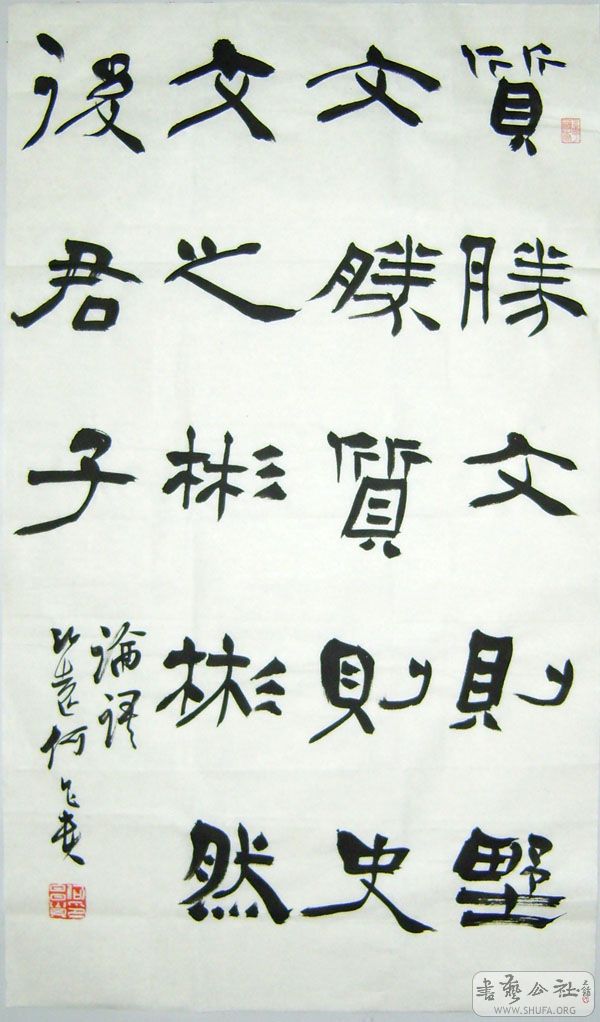 質勝文則野
文勝質則史
文之彬彬然
後君子
論語
何
書藝公社
WWW.SHUFA.ORG